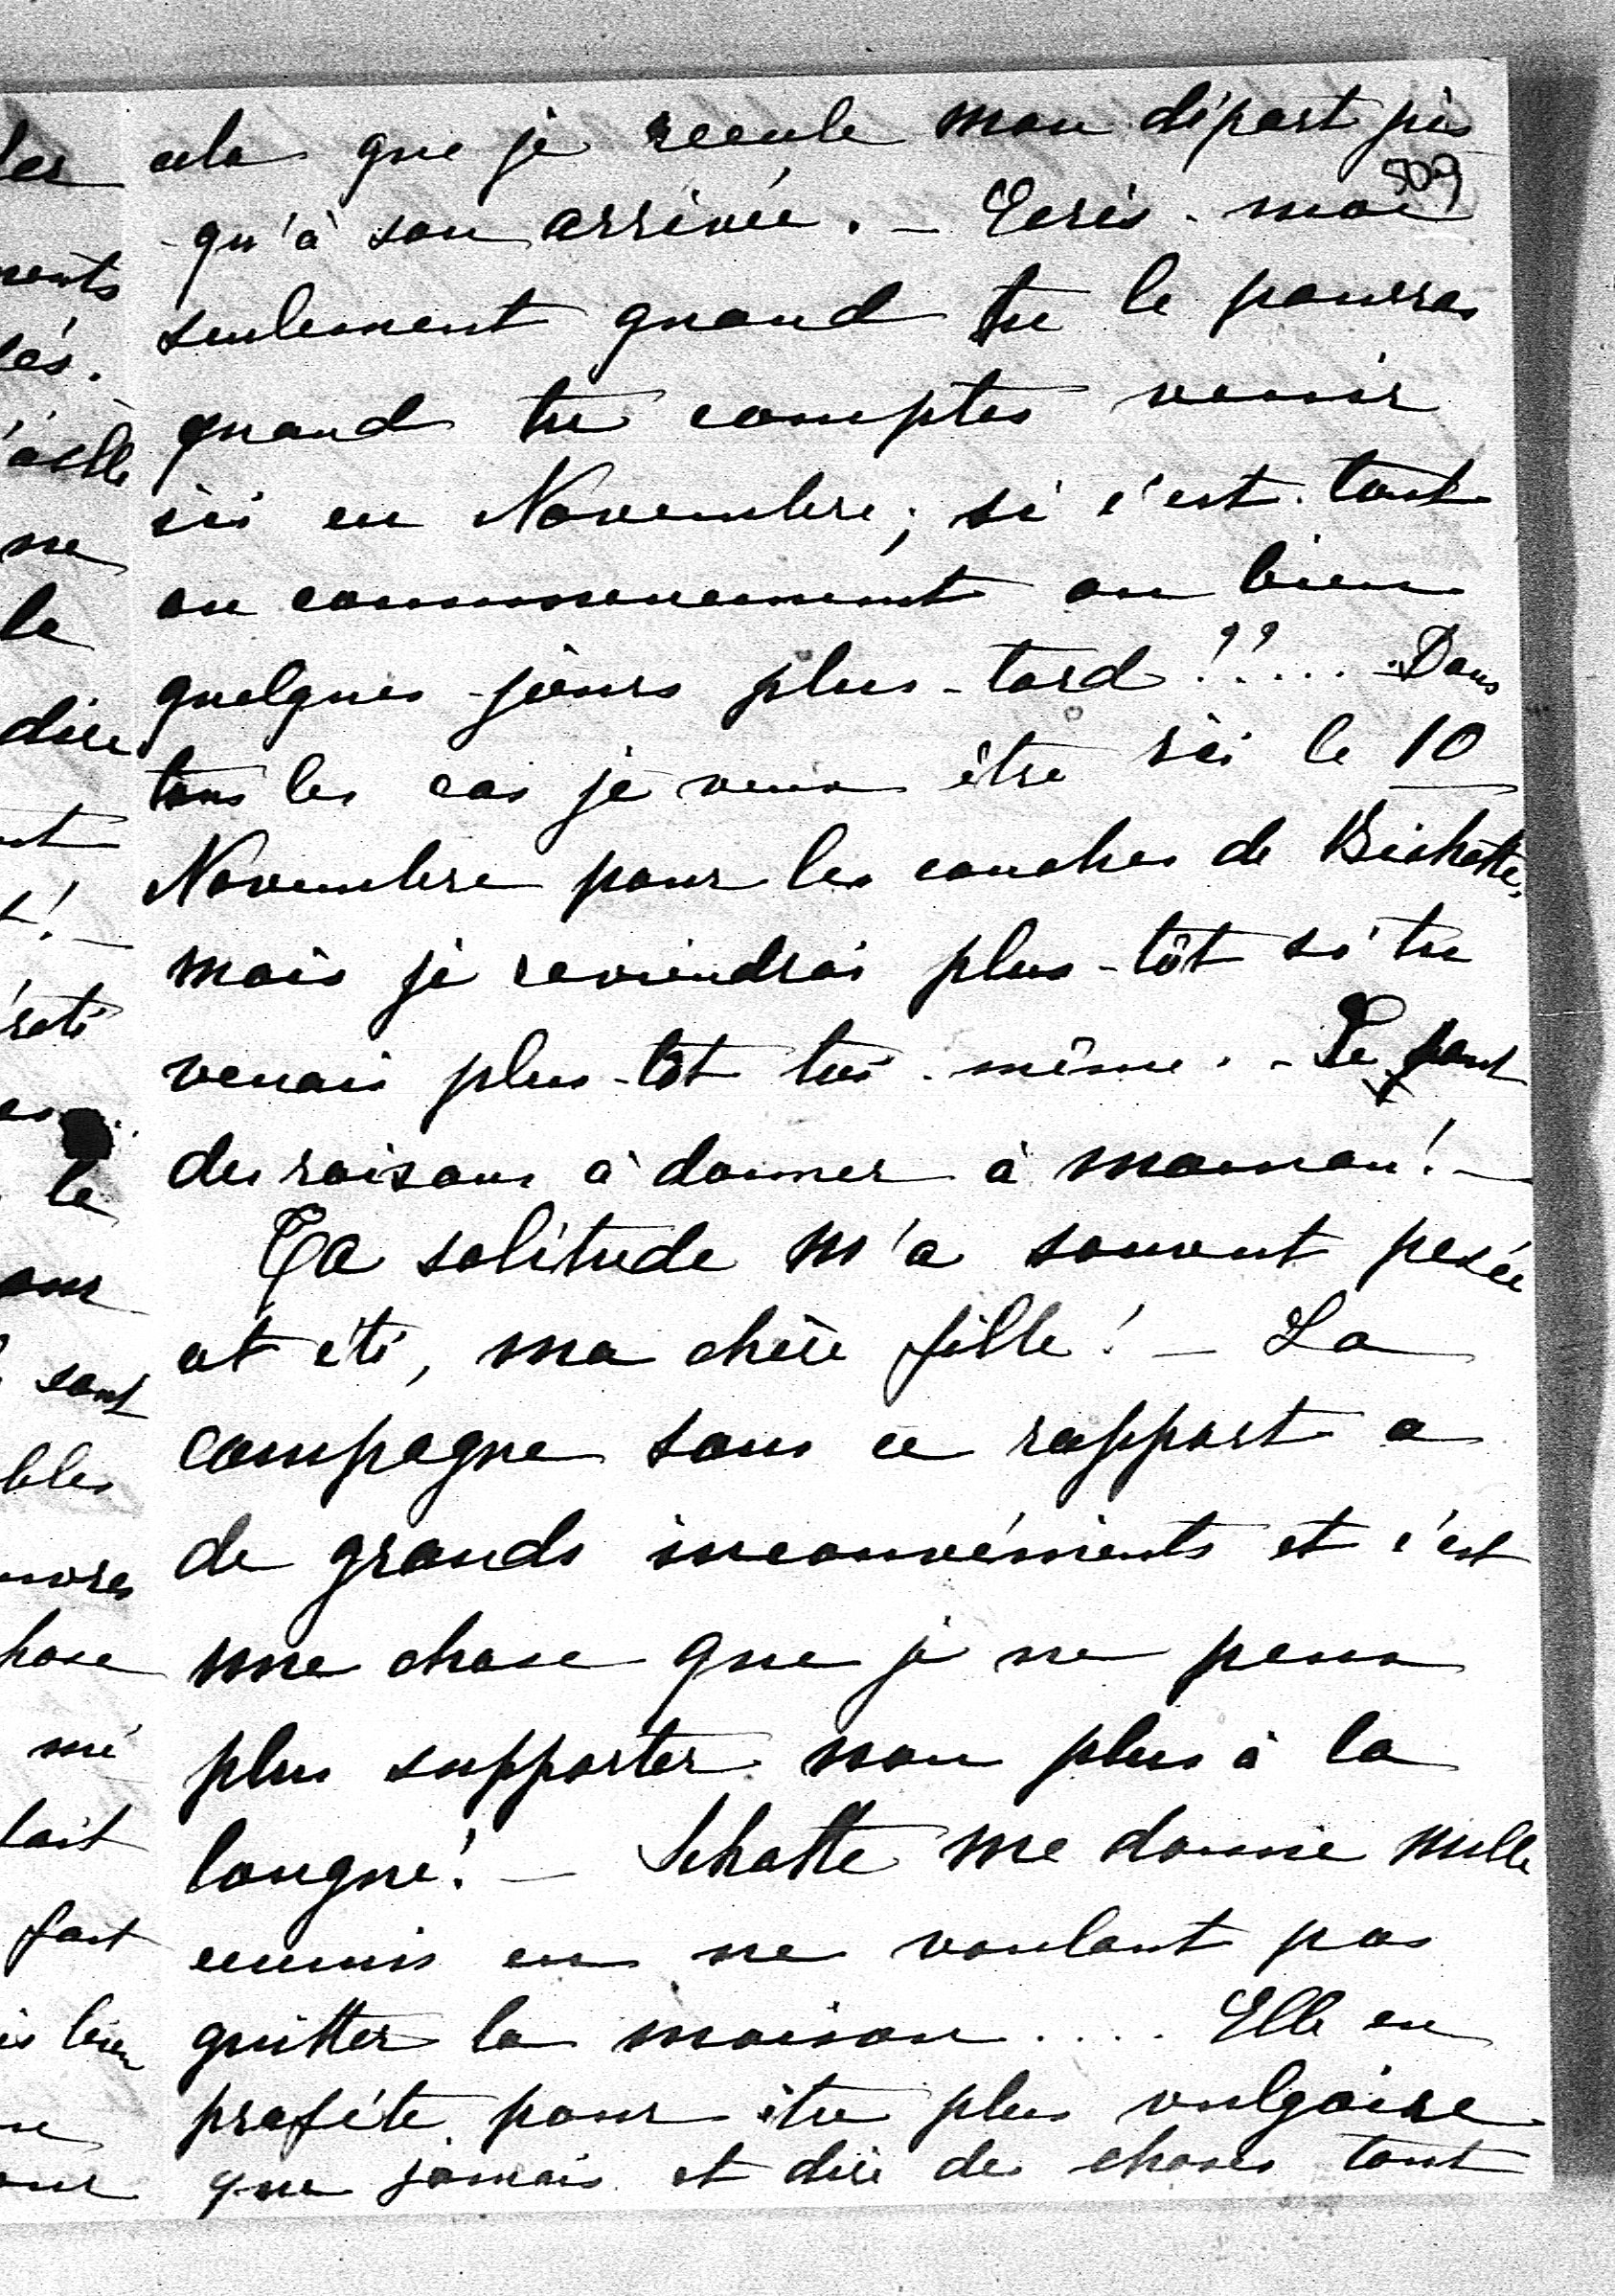 cela que je recule mon départ jus
509
qu'à son arrivée. – Ecris-moi
seulement quand tu le pourras
quand tu comptes venir
ici en Novembre; si c'est tout
au commencement ou bien
quelques jours plus-tard!??.... Dans
tous les cas je veux être ici le 10
Novembre pour les couches de Bichette,
mais je reviendrai plus-tôt si tu
venais plus-tôt toi-même. – Il faut
des raisons à donner à maman! –
Ta solitude m'a souvent pesée
cet été, ma chère fille! – La
campagne sous ce rapport a
de grands inconvénients et c'est
une chose que je ne peux
plus supporter non plus à la
longue! – Schatte me donne mille
ennuis en ne voulant pas
quitter la maison .... Elle en
profite pour être plus vulgaire
que jamais et dire des choses tout